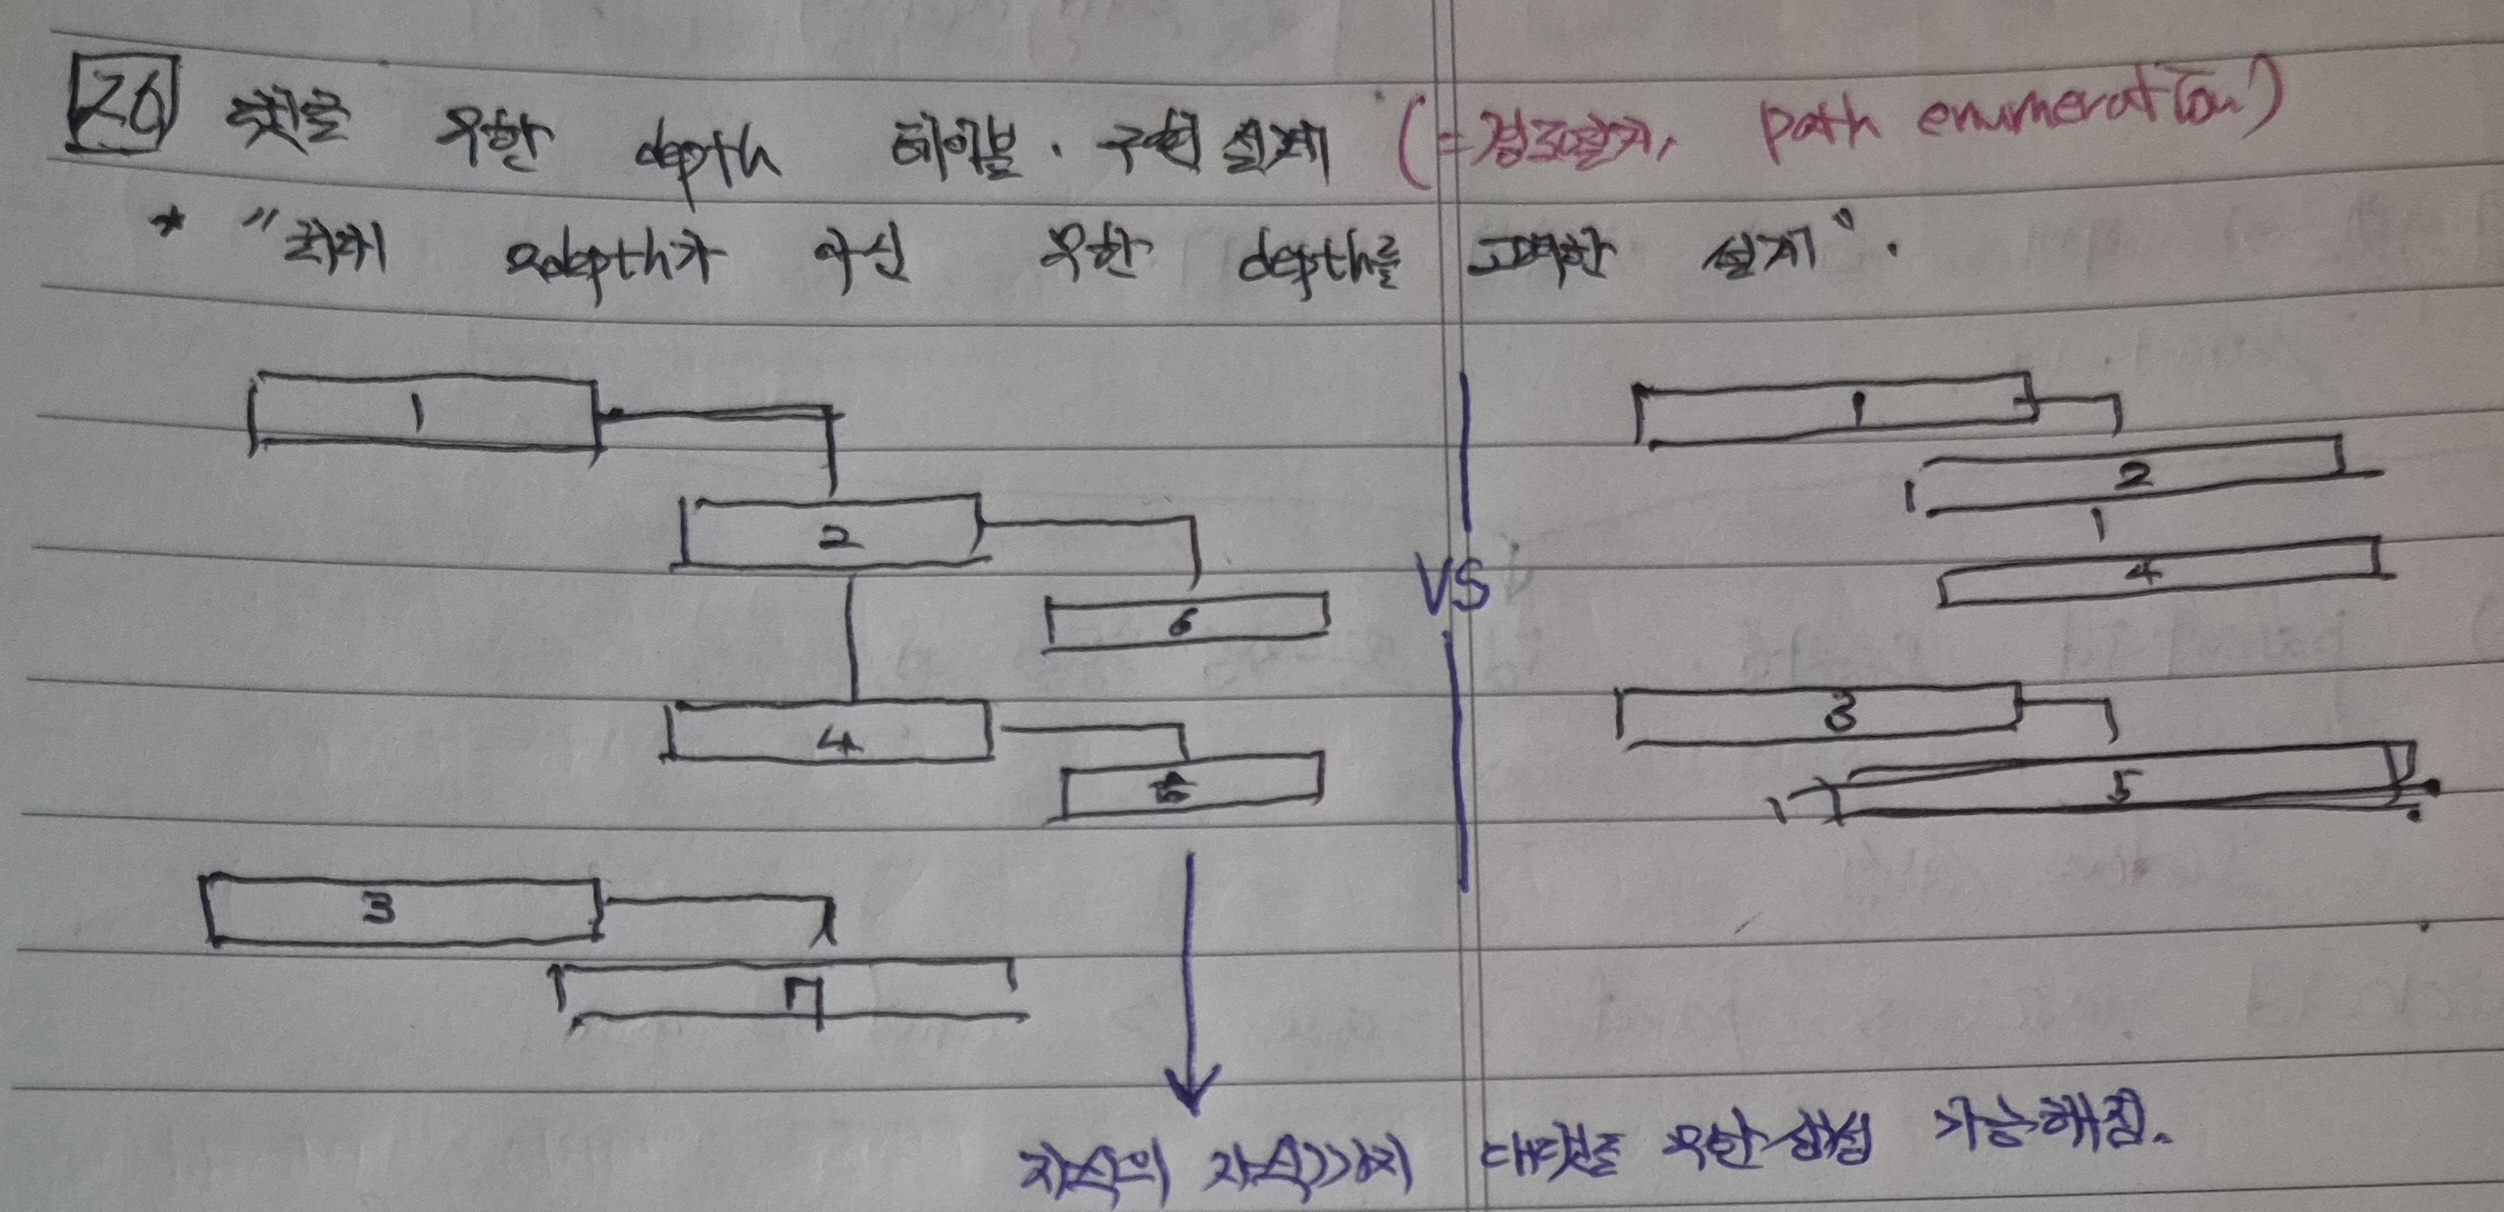 26 댓글 무한 depth 테이블. 구현 설계 (=경로열거, path enumeration)
* "최대 2depth가 아닌 무한 depth를 고려한 설계".
1
1
2
2
4
6
VS
4
5
3
5
3
7
자식의 자식까지 대댓글 무한생성 가능해짐.